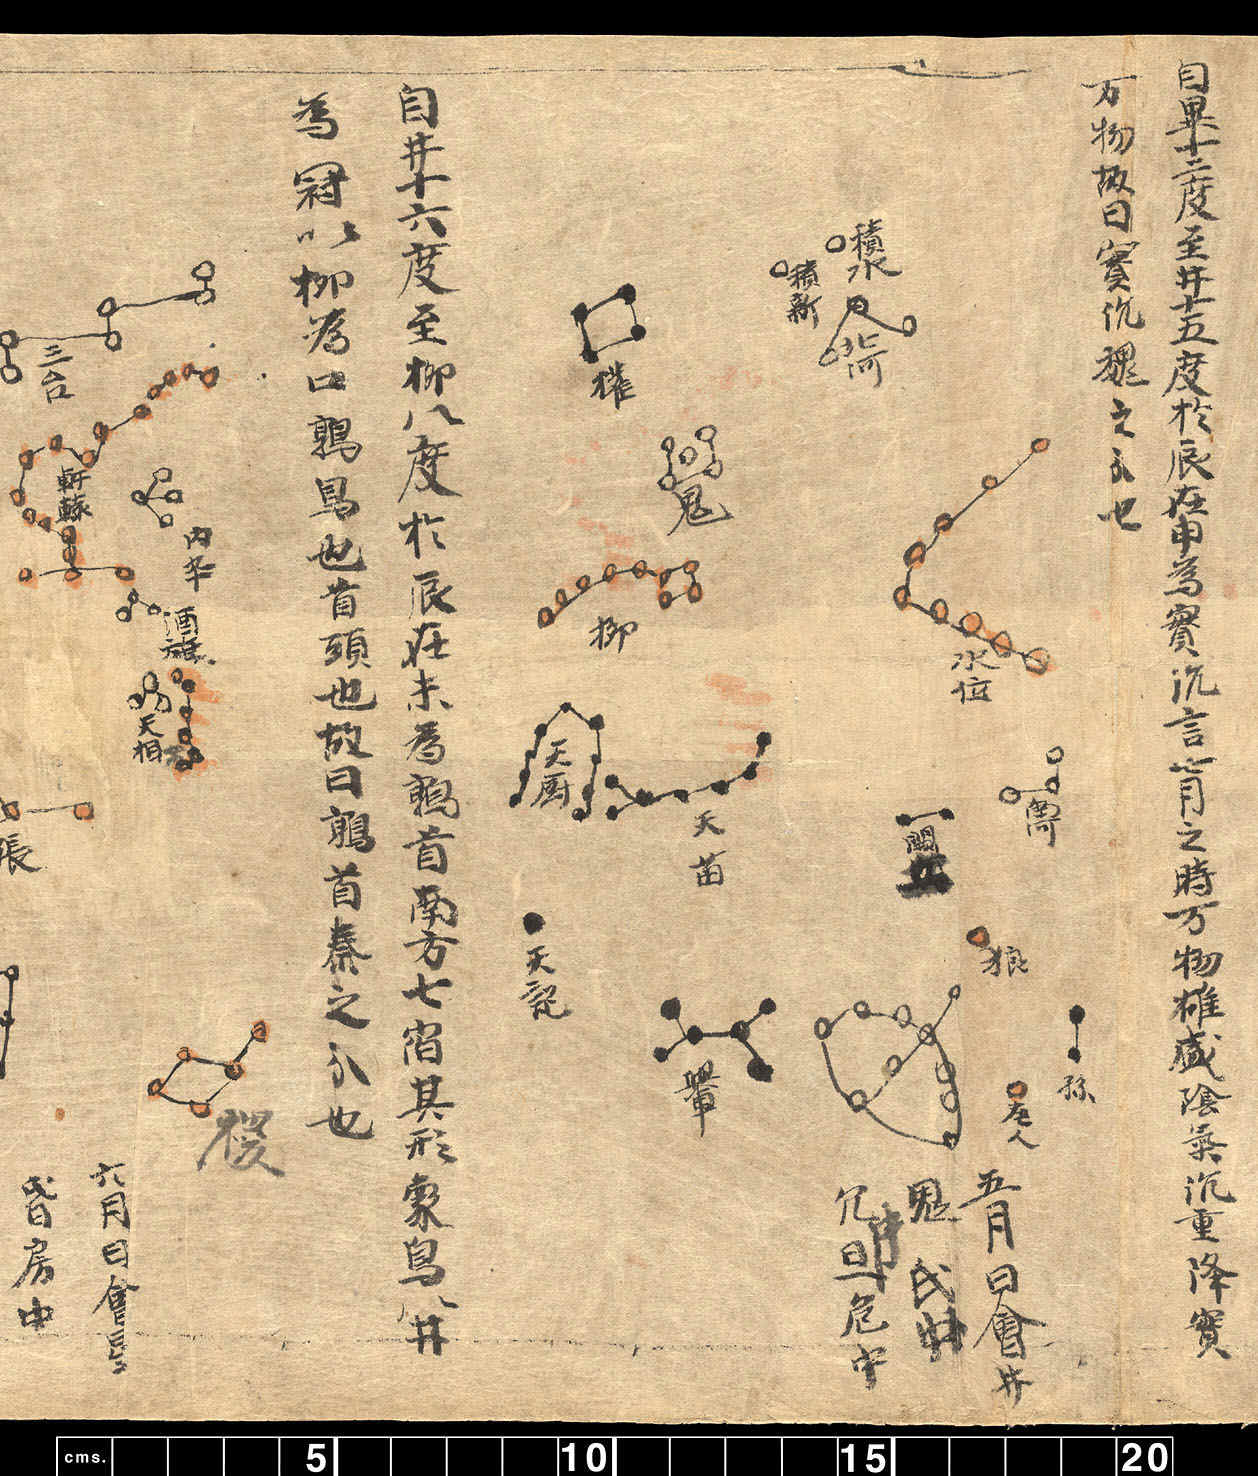 自畢十二度至井十五度於辰在申為實沉言七月之時万物雄盛陰氣沉重降實
万物故曰實沉魏之分也
積水
積新
北河
水位
四瀆
闕丘
狼
孫
老人
五月日會井
鬼
昏氐中
旦危中
爟
鬼
柳
天厨
天苗
天記
自井十六度至柳八度於辰在未為鶉首南方七宿其形象鳥以井
為冠以柳為口鶉鳥也首頭也故曰鶉首秦之分也
三台
軒轅
内平
酒旗
天相
稷
張
六月日會
昏房中
cms.
5
10
15
20